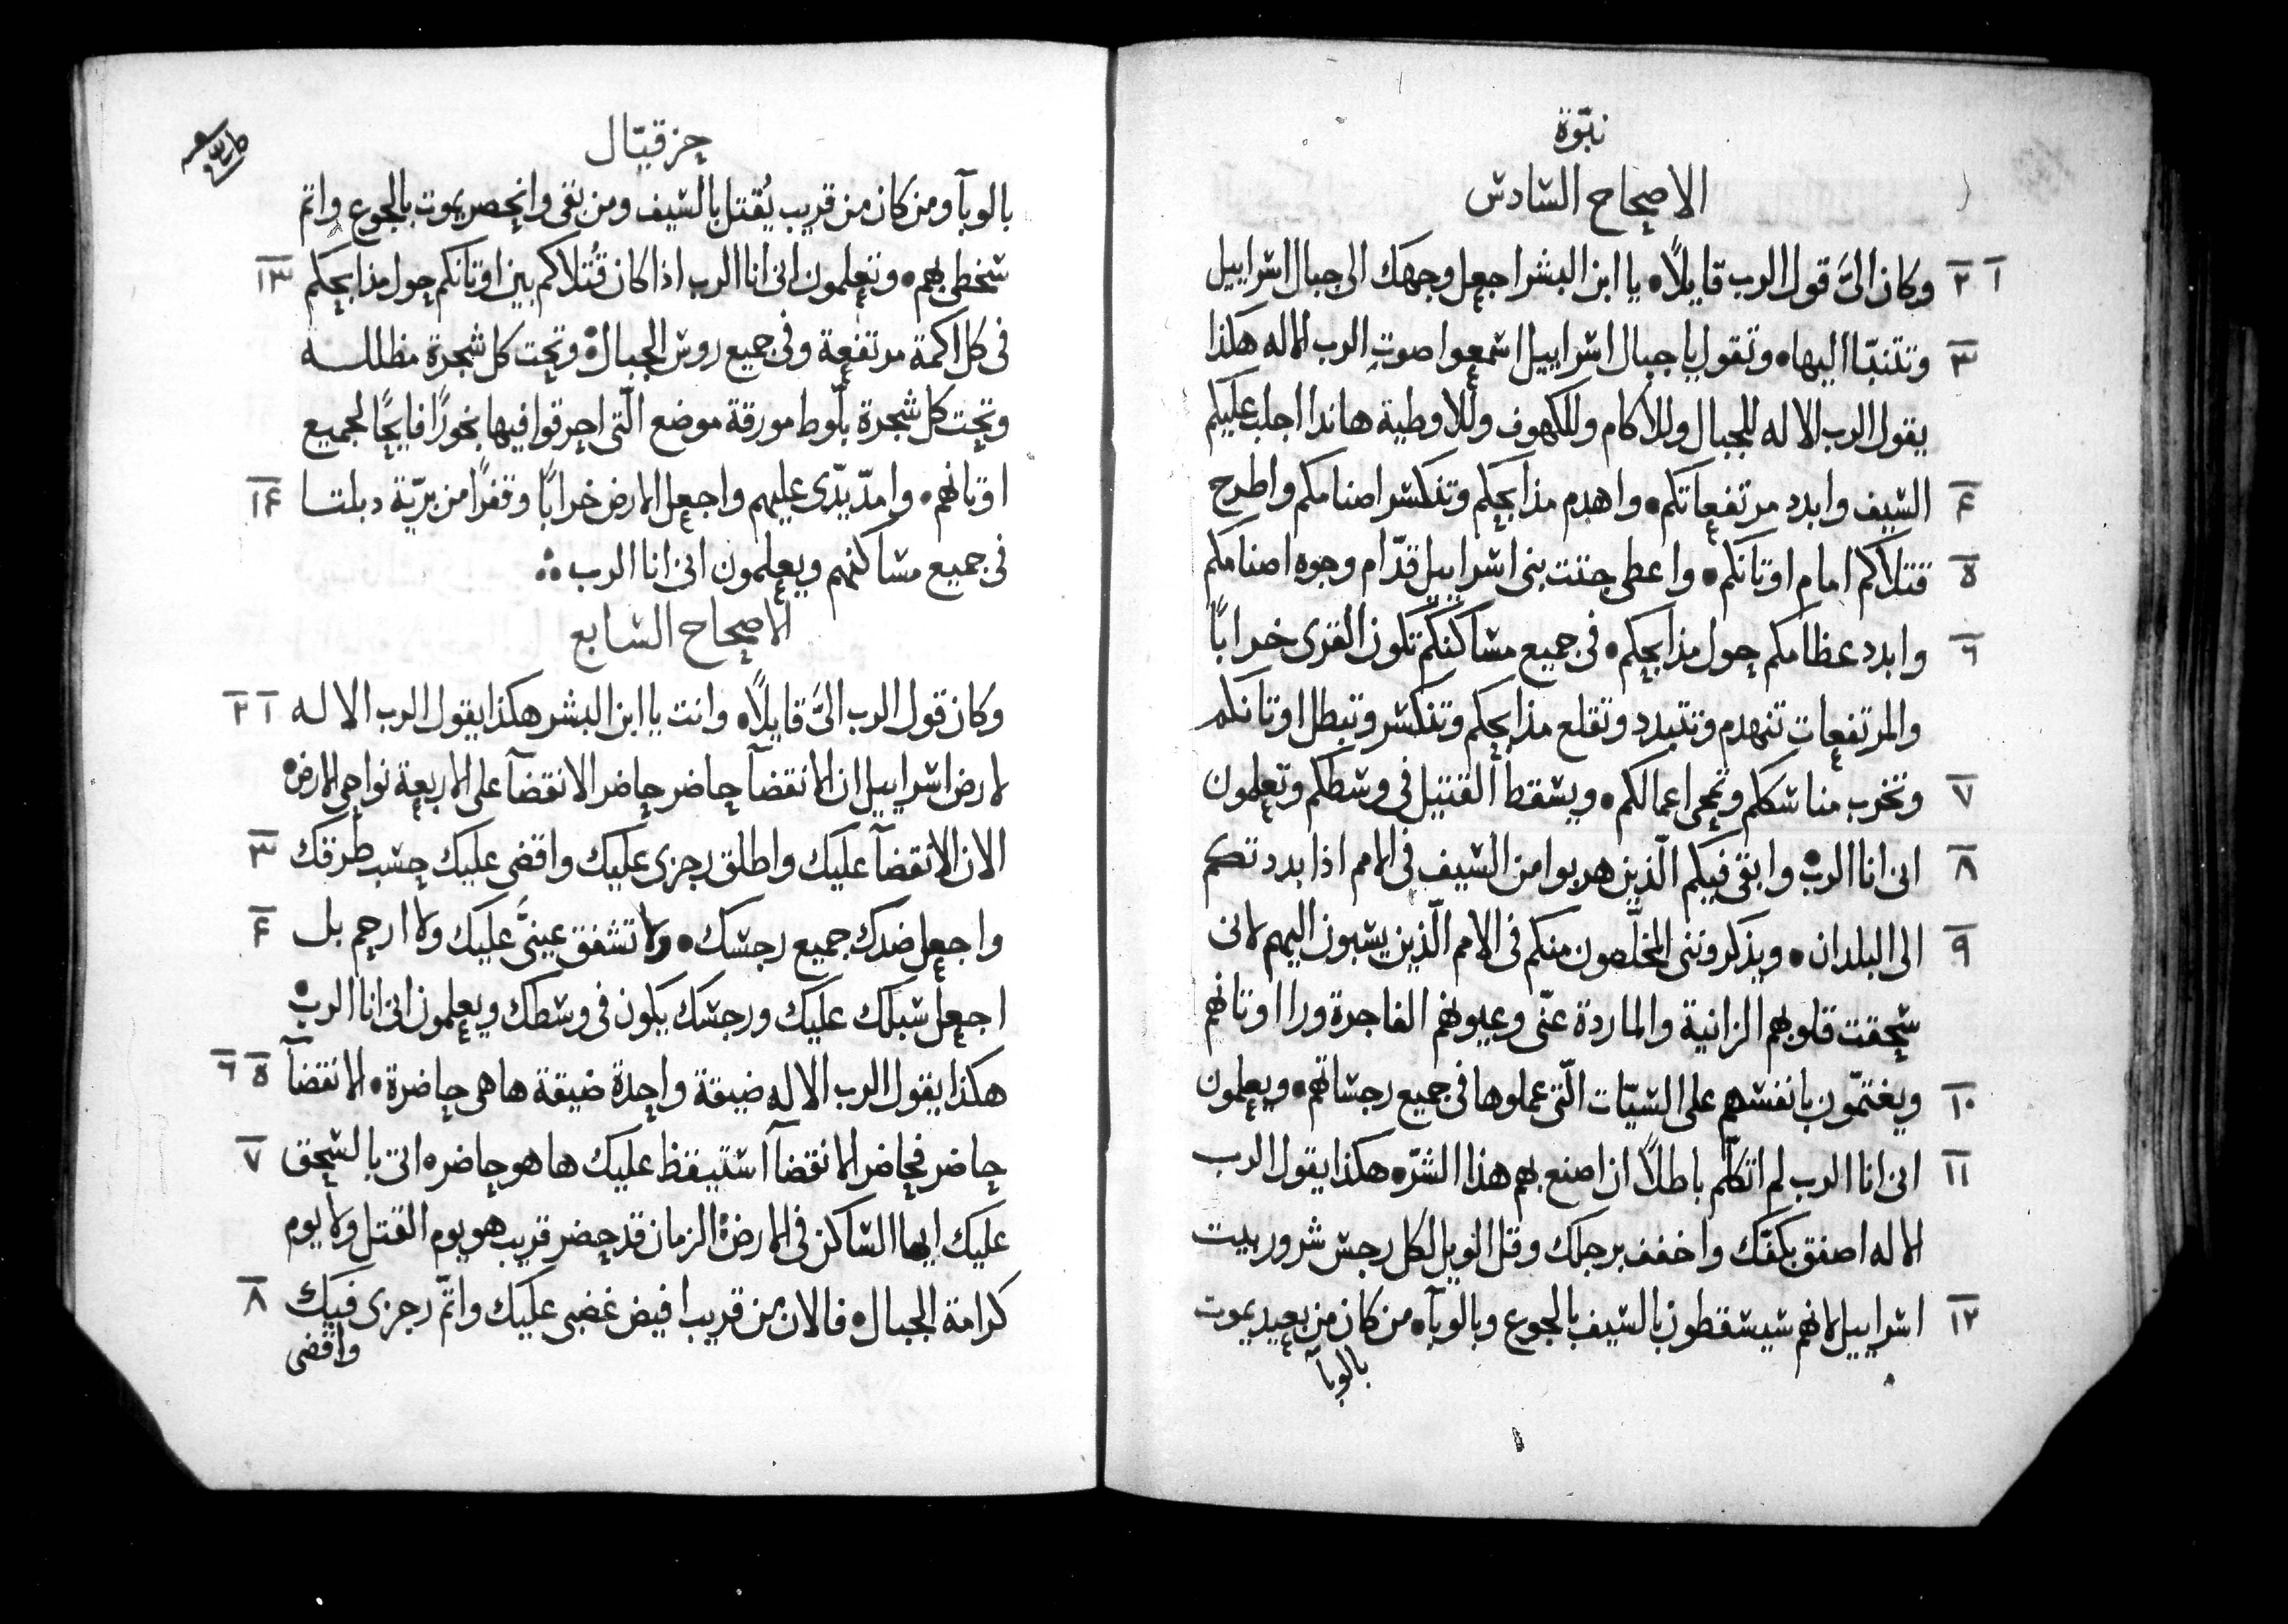 نبّوة
الاصحاح السادس
١ ٢ وكان الىَّ قول الرب قايلًا • يا ابن البشر اجعل وجهك الى جبال اسراييل
٣ وتتنبّا اليها • وتقول يا جبال اسراييل اسمعوا صوت الرب الاله هكذا
يقول الرب الاله للجبال وللأكام وللكهوف وللاوطية هاندا اجلب عليكم
۴ السيف وابدد مرتفعاتكم • واهدم مذابحكم وتنكسر اصنامكم واطرح
٥ قتلاكم امام اوتانكم • واعطى جتت بنى اسراييل قدّام وجوه اصنامكم
٦ وابدد عظامكم حول مذابحكم • فى جميع مساكنكم تكون القرى خرابًا
والمرتفعات تنهدم وتتبدد وتقلع مذابحكم وتنكسر وتبطل اوتانكم
٧ وتخرب مناسككم وتمحى اعمالكم • ويسقط القتيل فى وسطكم وتعلمون
٨ انى انا الرب • وابقى فيكم الّذين هربوا من السيف فى الامم اذا بددتكم
٩ الى البلدان • ويذكروننى المخلّصون منكم فى الامم الّذين يسبون اليهم لانى
سحقت قلوبهم الزانية والماردة عنّى وعيونهم الفاجرة ورا اوتانهم
١٠ ويغتمّون بانفسهم على السيّات الّتى عملوها فى جميع رجساتهم • ويعلمون
١١ انى انا الرب لم اتكلّم باطلًا ان اصنع بهم هذا الشرّ • هكذا يقول الرب
الاله اصفق بكفّك واخفف برجلك وقل الويل لكل رجس شرور بيت
١٢ اسراييل لانهم سيسقطون بالسيف بالجوع وبالوبآ • من كان من بعيد يموت
بالوبآ
حزقيّال
بالوبآ ومن كان من قريب يُقتل بالسيف ومن بقى وانحصر يموت بالجوع واتم
سخطى بهم • وتعلمون انى انا الرب اذا كان قُتلاكم بين اوتانكم حول مذابحكم ١٣
فى كل اكمة مرتفعة وفى جميع روس الجبال • وتحت كل شجرة مظللـه
وتحت كل شجرة بلّوط مورقة موضع الّتى احرقوا فيها بخورًا فايحًا لجميع
اوتانهم • وامدّ يدّى عليهم واجعل الارض خرابًا وقفرًا من بريّة دبلتا ١۴
فى جميع مساكنهم ويعلمون انى انا الرب
الاصحاح السابع
وكان قول الرب الىَّ قايلًا • وانت يا ابن البشر هكذا يقول الرب الاله ١ ٢
لارض اسراييل ان الانقضآ حاضر حاضر الانقضآ على الاربعة نواحى الارض •
الان الانقضآ عليك واطلق رجزى عليك واقضى عليك حسب طرقك ٣
واجعل ضدك جميع رجسك • ولا تشفق عينىَّ عليك ولا ارحم بل ۴
اجعل سبلك عليك ورجسك يكون فى وسطك ويعلمون انى انا الرب •
هكذا يقول الرب الاله ضيقة واحدة ضيقة ها هى حاضرة • الانقضآ ٥ ٦
حاضر فحاضر الانقضآ استيقظ عليك ها هو حاضر • اتى بالسحق ٧
عليك ايها الساكن فى الارض • الزمان قد حضر قريب هو يوم القتل ولا يوم
كرامة الجبال • فالان من قريب افيض غضبى عليك واتمّ رجزى فيك ٨
واقضى